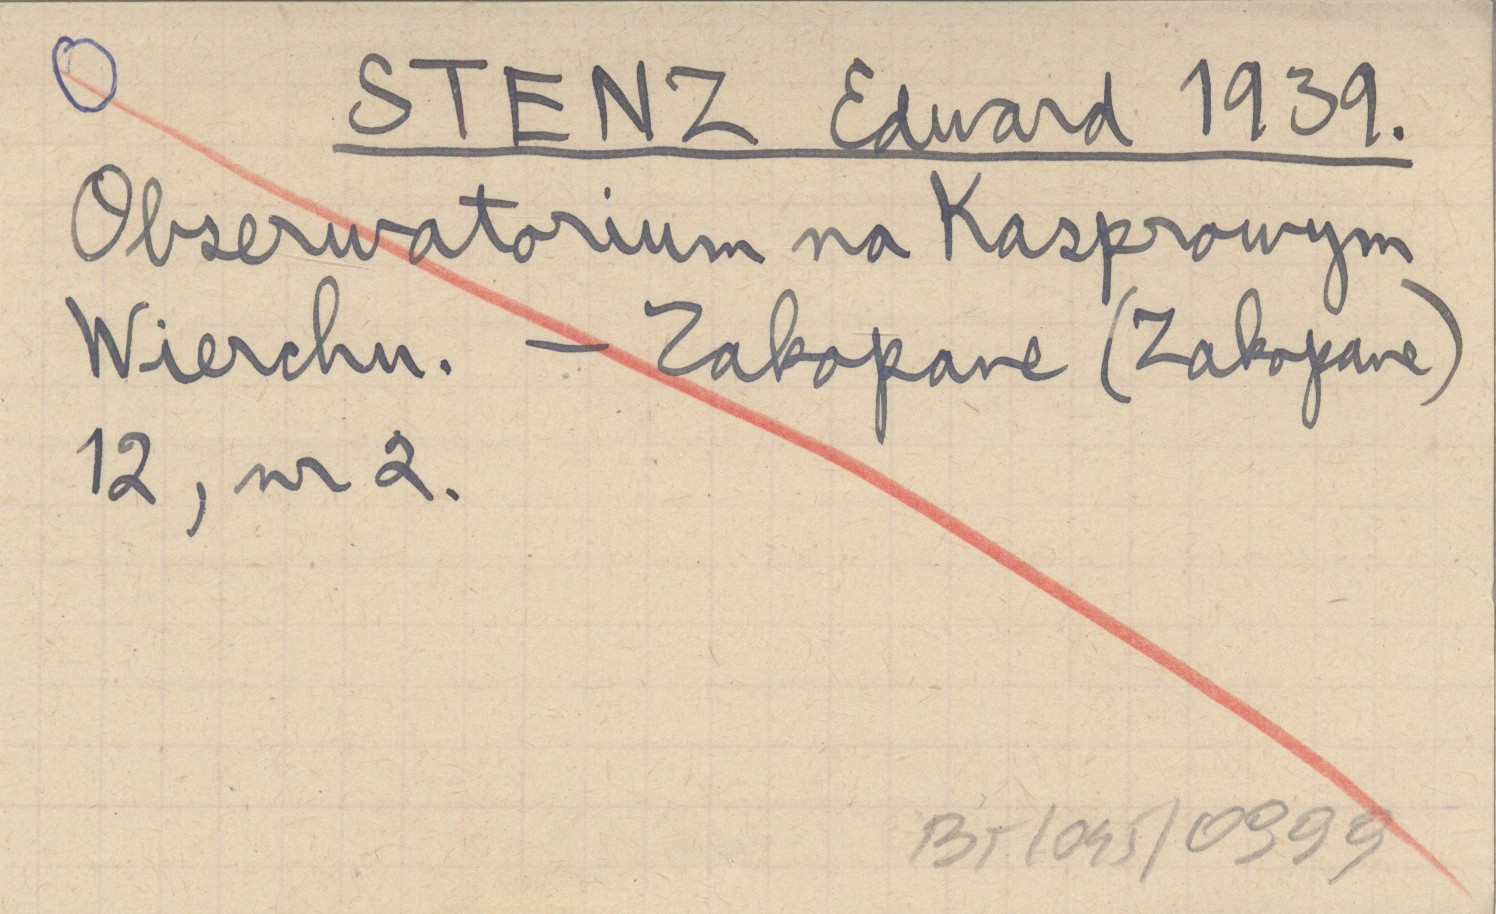 STENZ Edward 1939.
Obserwatorium na Kasprowym
Wierchu. – Zakopane (Zakopane)
12, nr 2.
BT/045/0999